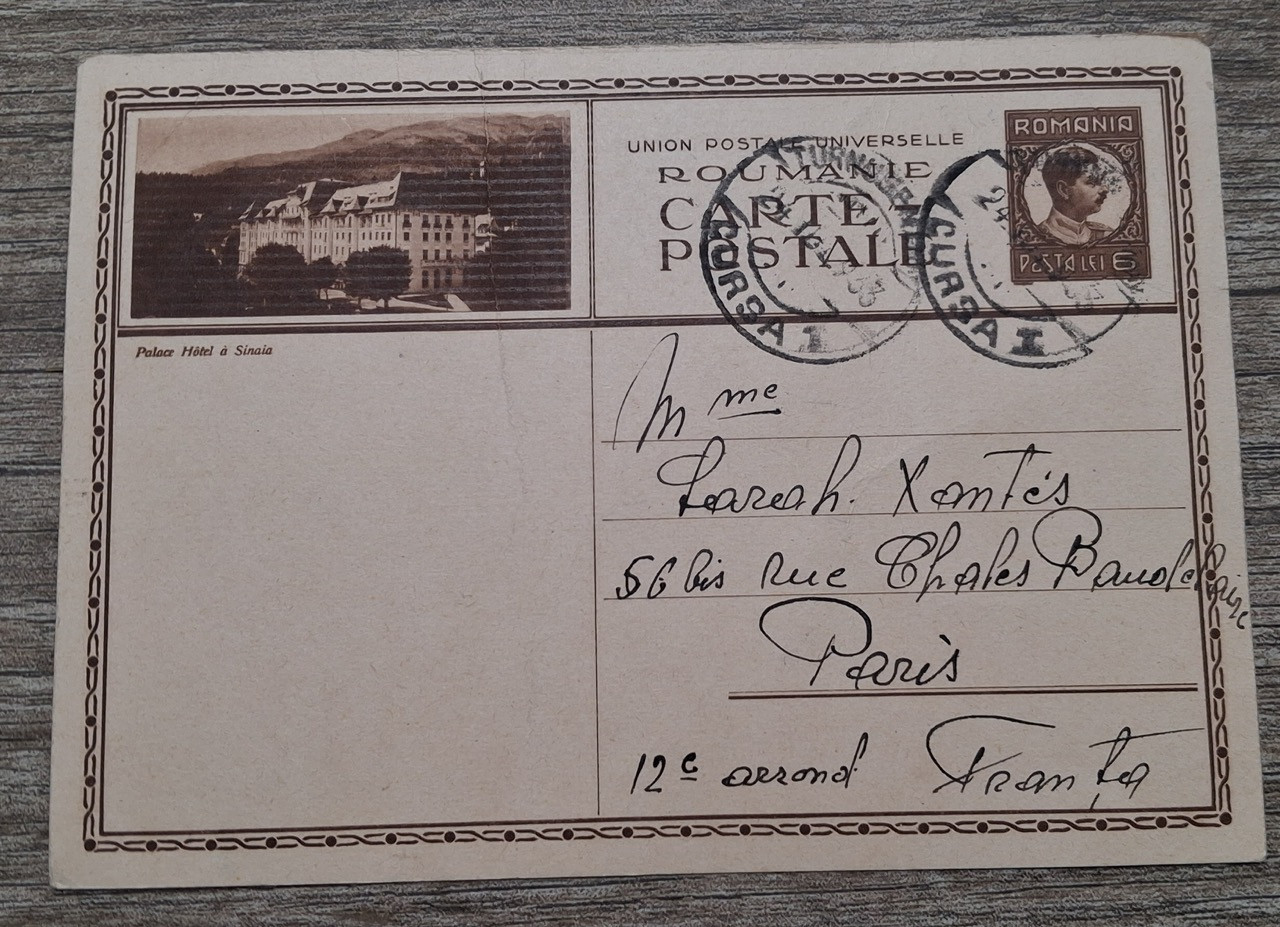 UNION POSTALE UNIVERSELLE
ROUMANIE
CARTE
POSTALE
ROMANIA
POSTA LEI 6
CURSA I
CURSA I
Palace Hôtel à Sinaia
Mme
Sarah. Xantès
56 bis Rue Chales Baudelaire
Paris
12e arrond Franța